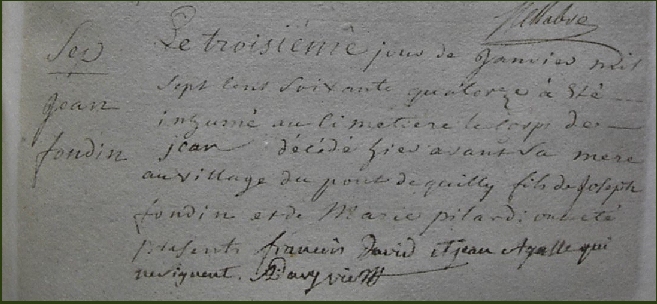 Sep
jean
fondin
Le troisiéme jour de Janvier mil
sept cens soixante quatorze à été
inhumé au cimetiere le corps de
jean décédé hier avant sa mere
au village du pont de quilly fils de Joseph
fondin et de Marie pilard: ont été
présents francois David et jean Agasse qui
ne signent.